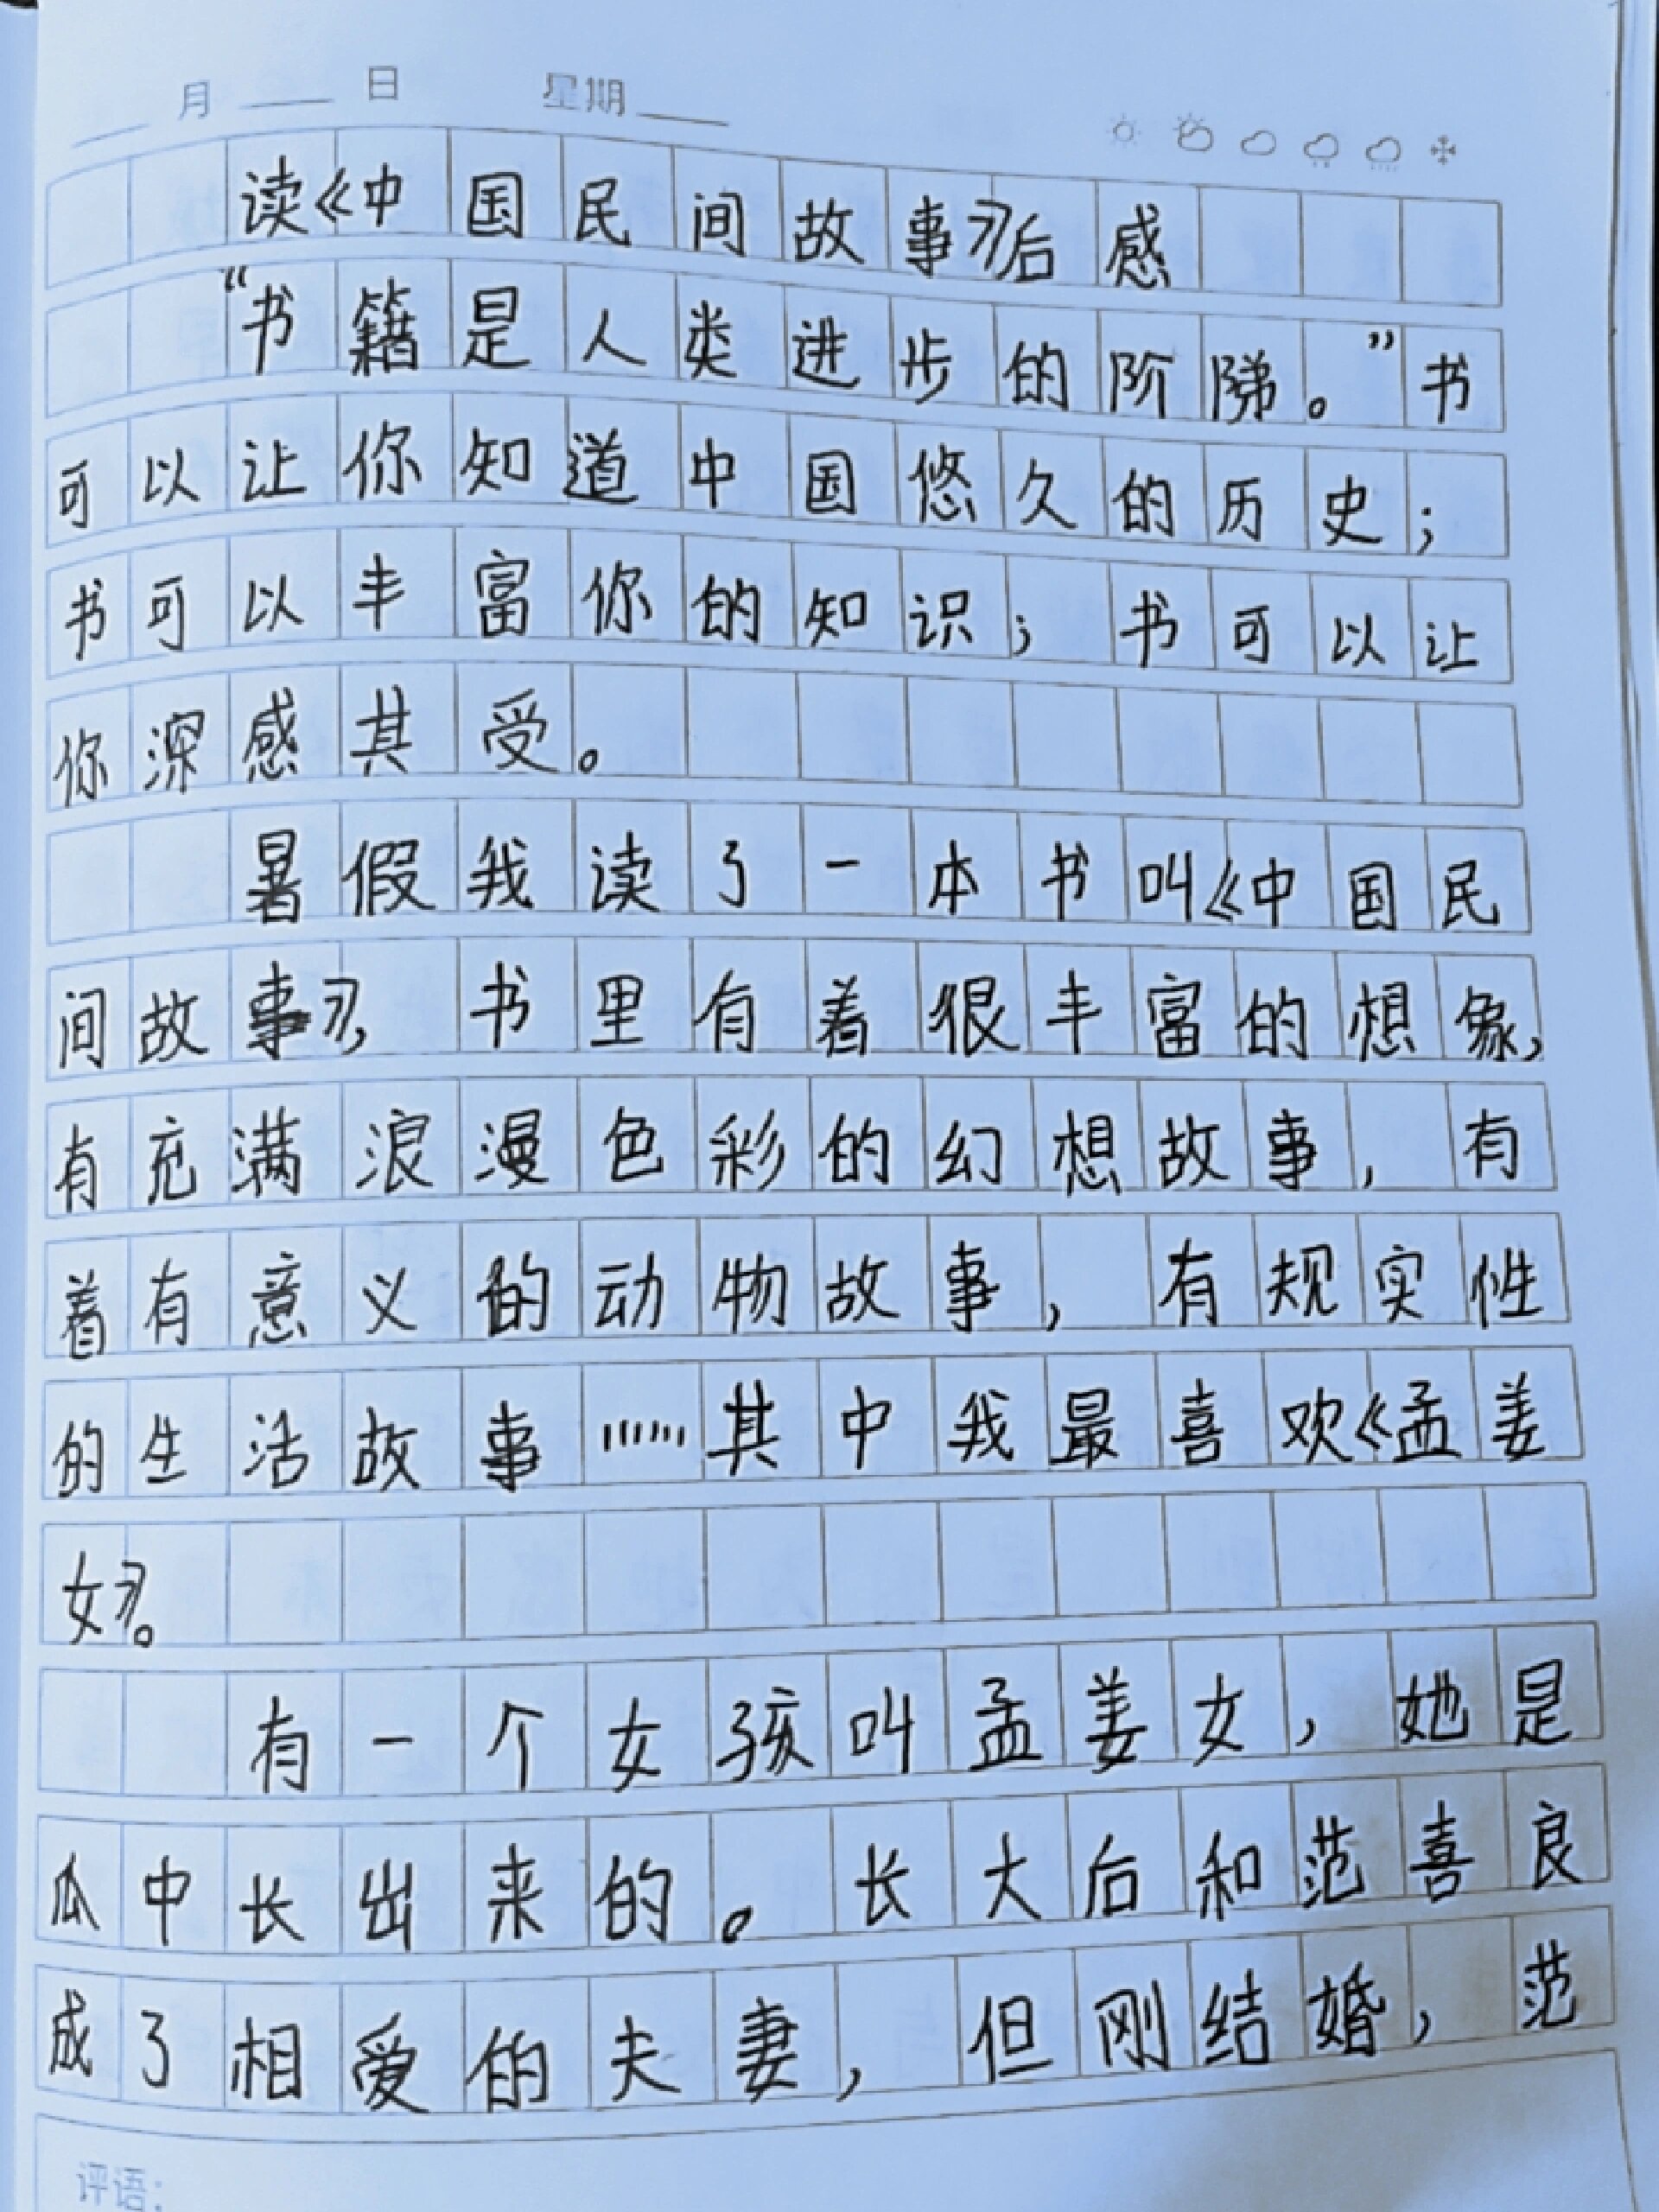 月 日 星期
读《中国民间故事》后感
“书籍是人类进步的阶梯。”书
可以让你知道中国悠久的历史；
书可以丰富你的知识；书可以让
你深感其受。
暑假我读了一本书叫《中国民
间故事》，书里有着很丰富的想象，
有充满浪漫色彩的幻想故事，有
着有意义的动物故事，有规实性
的生活故事……其中我最喜欢《孟姜
女》。
有一个女孩叫孟姜女，她是
瓜中长出来的。长大后和范喜良
成了相爱的夫妻，但刚结婚，范
评语：